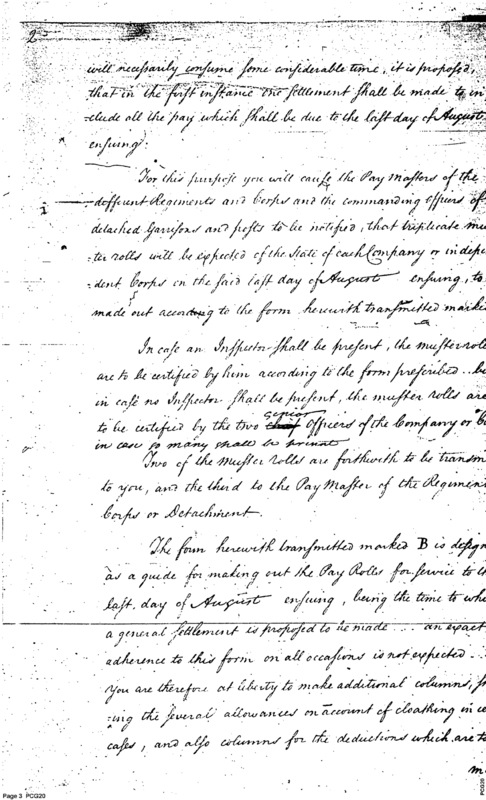 2
will necessarily consume some considerable time, it is proposed,
that in the first instance one settlement shall be made to in
clude all the pay which shall be due to the last day of August
ensuing.
For this purpose you will cause the Pay Masters of the
different Regiments and Corps and the commanding officers of
detached Garrisons and posts to be notified, that triplicate mus
ter rolls will be expected of the State of each Company or indepe
-dent Corps on the said last day of August ensuing, to
made out according to the form herewith transmitted marked
In case an Inspector shall be present, the muster rolls
are to be certified by him according to the form prescribed .. bu
in case no Inspector shall be present, the muster rolls are
senior
to be certified by the two chief Officers of the Company or Co
in case so many shall be present
Two of the muster rolls are forthwith to be transm
to you, and the third to the Pay Master of the Regimen
Corps or Detachment.
The form herewith transmitted marked B is design
as a guide for making out the Pay Rolls for service to th
last day of August ensuing, being the time to whi
a general settlement is proposed to be made ... an exact
adherence to this form on all occasions is not expected ..
You are therefore at liberty to make additional columns, s
-ing the several allowances on account of cloathing in ce
cases, and also columns for the deductions which are to
m
Page 3 PCG20
PCG20